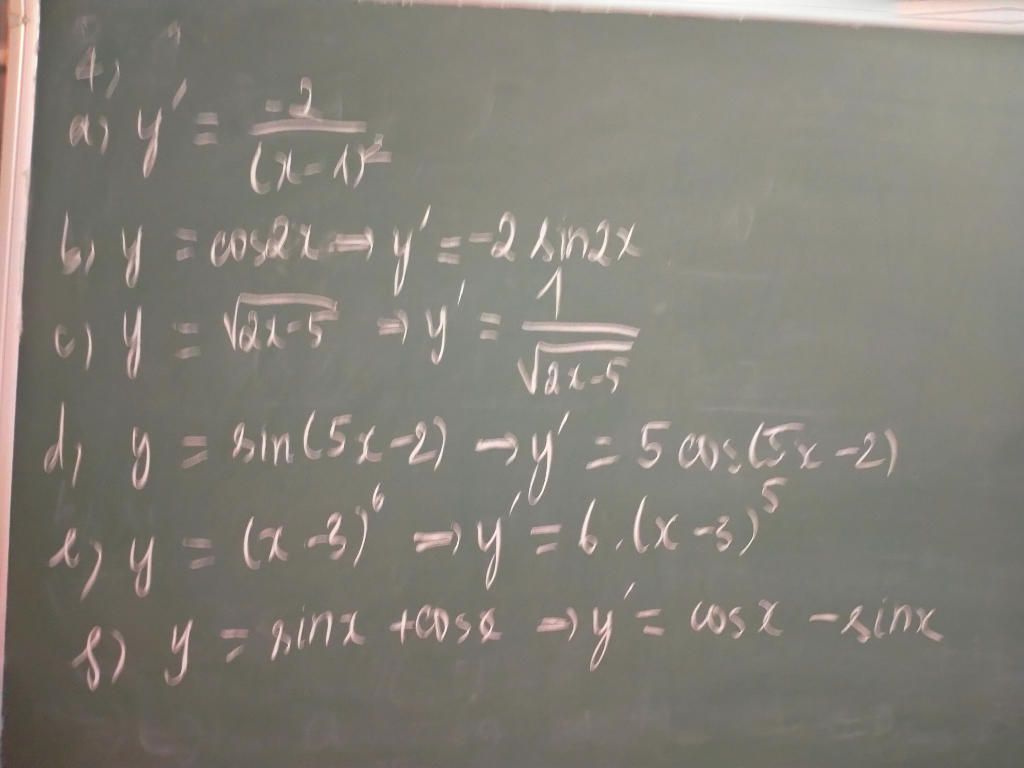 4)
a) y' = -2/(x-1)²
b) y = cos2x ⇒ y' = -2 sin2x
c) y = √(2x-5) ⇒ y' = 1/√(2x-5)
d) y = sin(5x-2) → y' = 5 cos(5x-2)
e) y = (x-3)⁶ ⇒ y' = 6.(x-3)⁵
f) y = sinx + cosx ⇒ y' = cosx - sinx